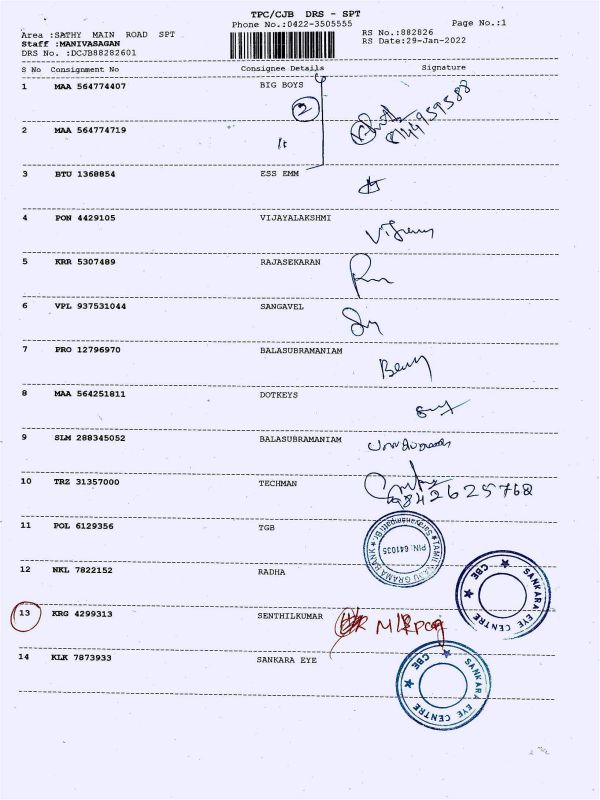 TPC/CJB DRS - SPT
Phone No.:0422-3505555 Page No.:1
Area :SATHY MAIN ROAD SPT RS No.:882826
Staff :MANIVASAGAN RS Date:29-Jan-2022
DRS No. :DCJB88282601
S No Consignment No Consignee Details Signature
1 MAA 564774407 BIG BOYS
2
2 MAA 564774719
3 BTU 1368854 ESS EMM
4 PON 4429105 VIJAYALAKSHMI
5 KRR 5307489 RAJASEKARAN
6 VPL 937531044 SANGAVEL
7 PRO 12796970 BALASUBRAMANIAM
8 MAA 564251811 DOTKEYS
9 SLM 288345052 BALASUBRAMANIAM
10 TRZ 31357000 TECHMAN
9842625768
11 POL 6129356 TGB
TAMIL NADU GRAMA BANK
Saravanampatti Br.
PIN: 641035
12 NKL 7822152 RADHA
SANKARA EYE CENTRE
CBE
13 KRG 4299313 SENTHILKUMAR
14 KLK 7873933 SANKARA EYE
SANKARA EYE CENTRE
CBE